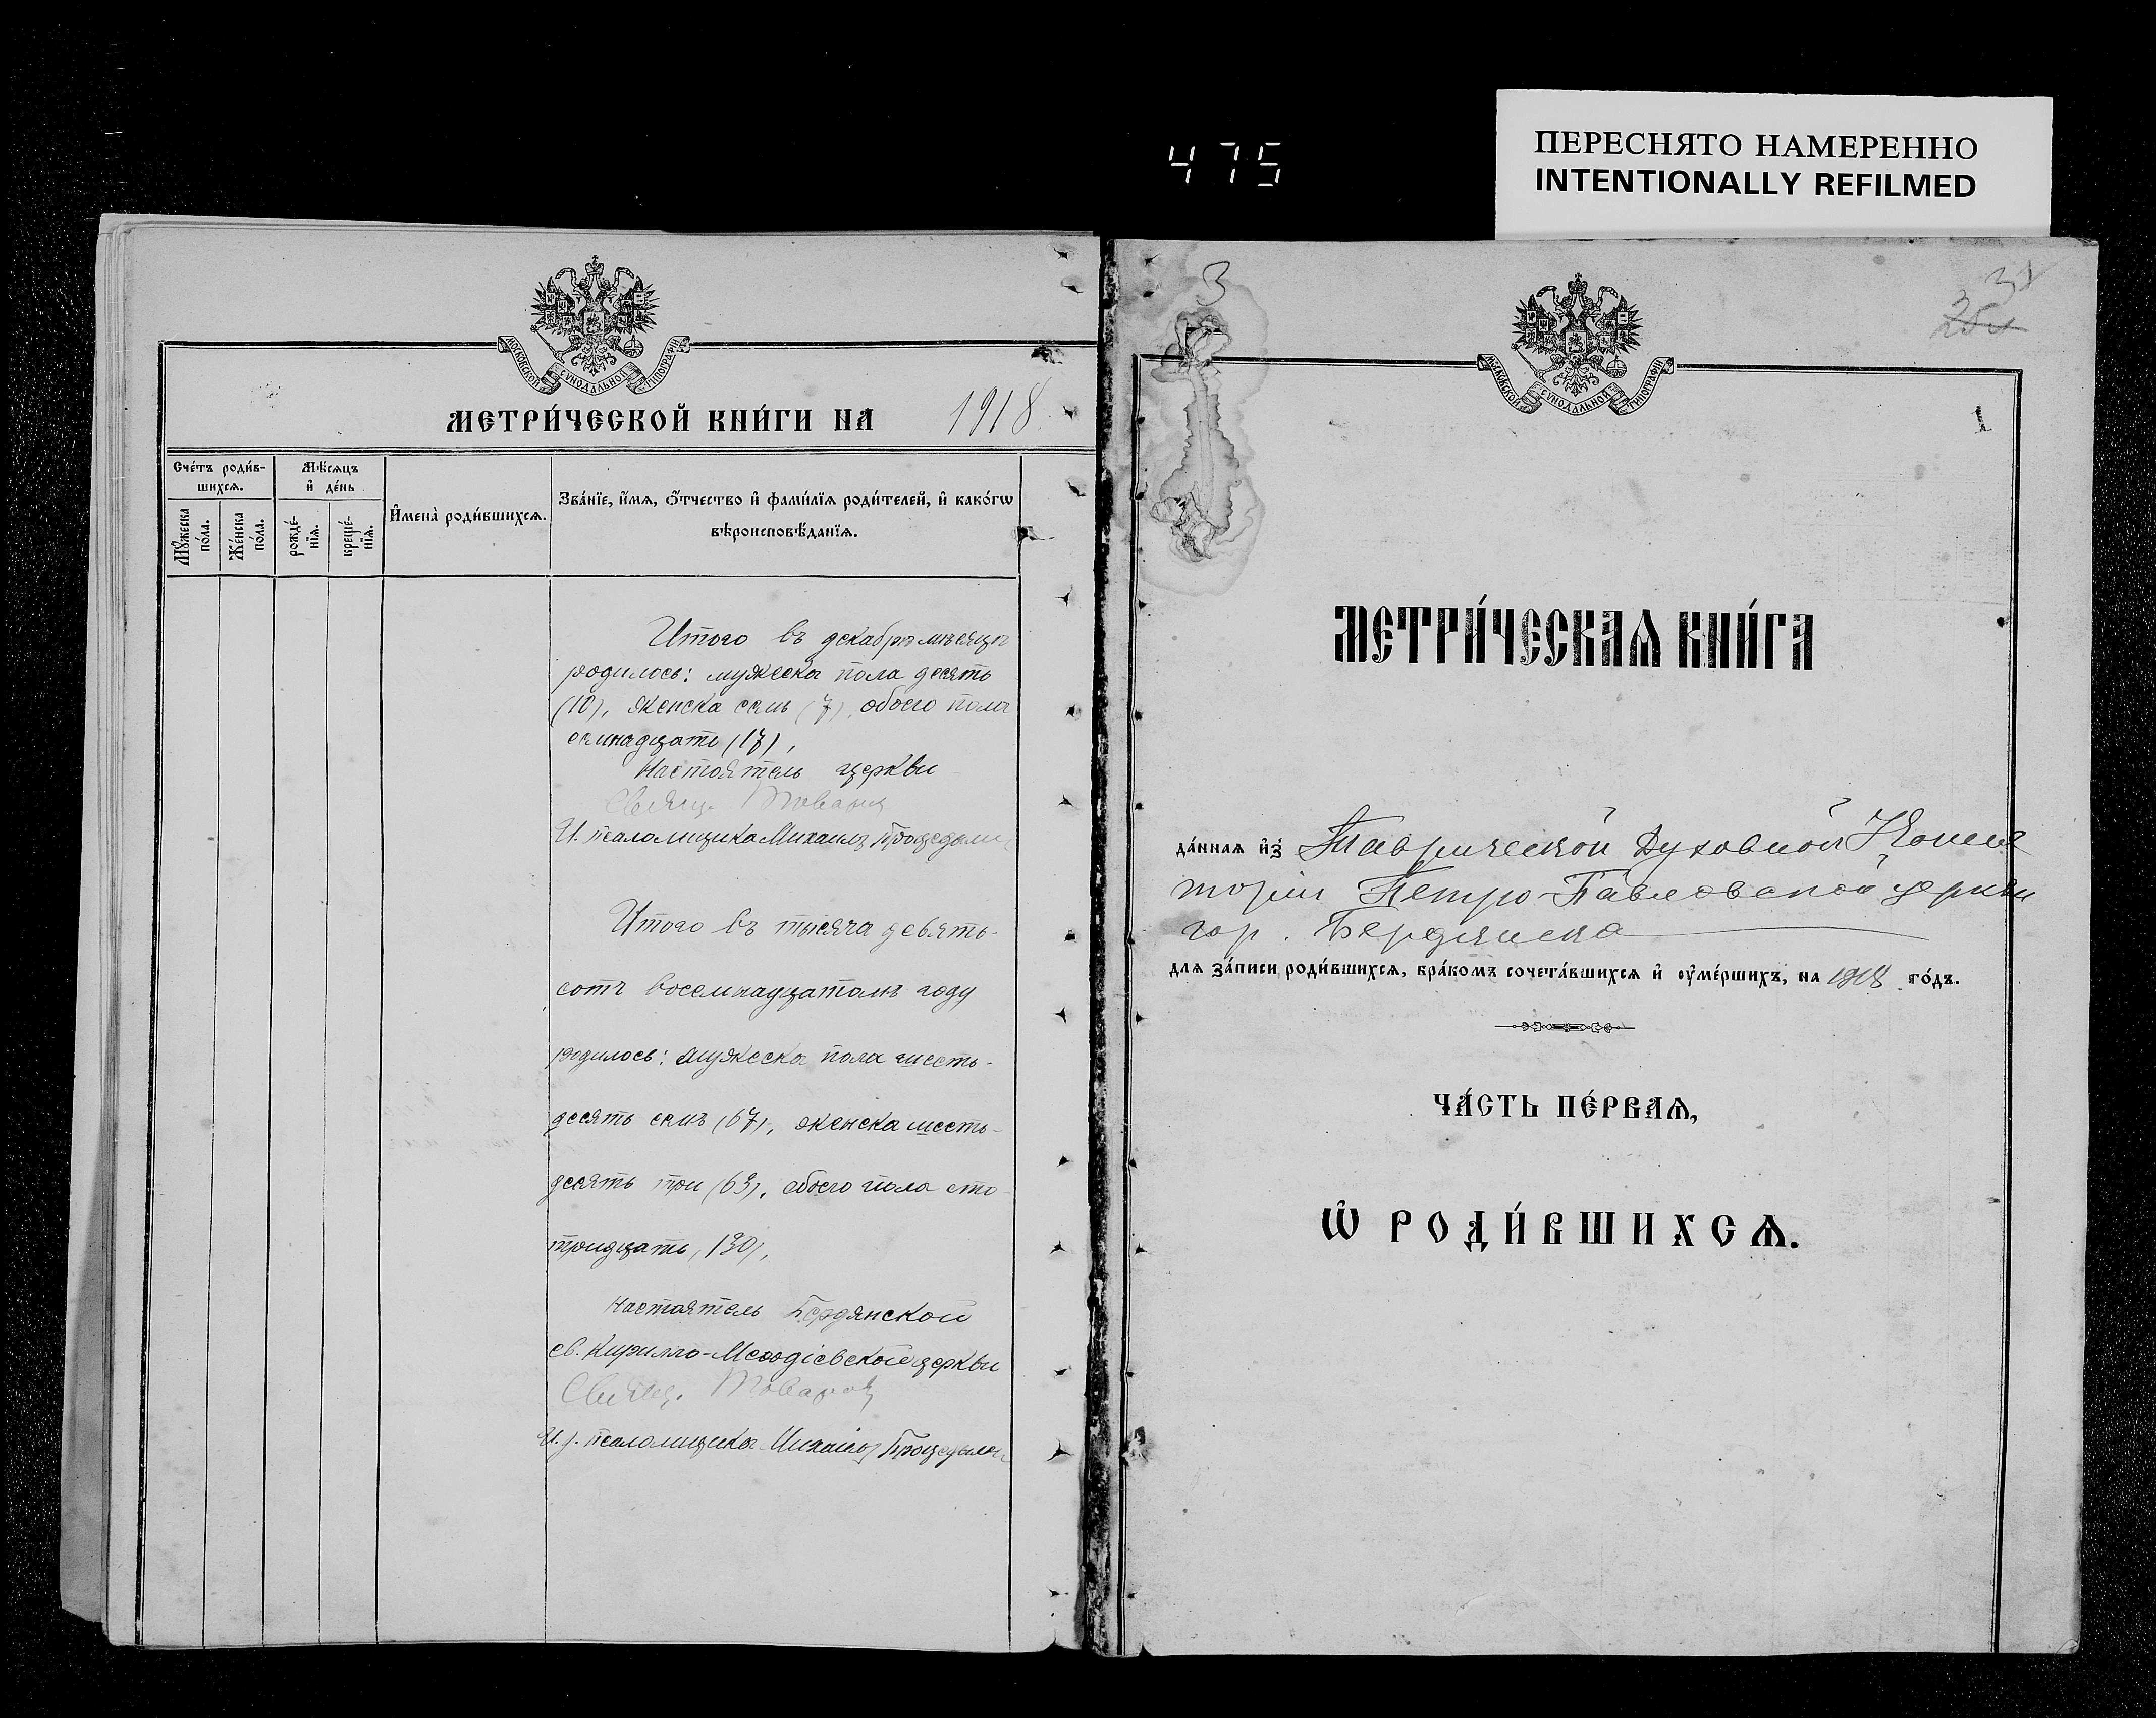 475
ПЕРЕСНЯТО НАМЕРЕННО
INTENTIONALLY REFILMED
МОСКОВСКОЙ СѴНОДАЛЬНОЙ ТИПОГРАФІИ
МЕТРИ́ЧЕСКОЙ КНИ́ГИ НА 1918
Сче́тъ роди́в-
шихсѧ.
Мꙋ́жеска по́ла.
Же́нска по́ла.
Мѣ́сѧцъ
и҆ де́нь
рожде́-
нїѧ.
креще́-
нїѧ.
И҆мена̀ роди́вшихсѧ.
Зва́нїе, и҆́мѧ, ѻ҆́тчество и҆ фами́лїѧ роди́телей, и҆ како́гѡ
вѣроисповѣ́данїѧ.
Итого въ декабрѣ мѣсяцѣ
родилось: мужеска пола десять
(10), женска семь (7), обоего пола
семнадцать (17),
Настоятель церкви
Священ.
И. псаломщика Михаилъ
Итого въ тысяча девять-
сотъ восемнадцатомъ году
родилось: мужеска пола шесть-
десять семь (67), женска шесть-
десять три (63), обоего пола сто
тридцать (130),
Настоятель Бердянской
св. Кирилло-Меѳодіевской церкви
Священ.
И. д. псаломщика Михаилъ
3
31
1
МОСКОВСКОЙ СѴНОДАЛЬНОЙ ТИПОГРАФІИ
МЕТРИ́ЧЕСКАѦ КНИ́ГА
да́ннаѧ и҆з̾ Таврической Духовной Консис
торіи Петро-Павловской церкви
гор. Бердянска
длѧ за́писи роди́вшихсѧ, бра́комъ сочета́вшихсѧ и҆ ᲂу҆ме́ршихъ, на 1918 го́дъ.
ЧА́СТЬ ПЕ́РВАѦ,
Ѡ҆ РОДИ́ВШИХСѦ.